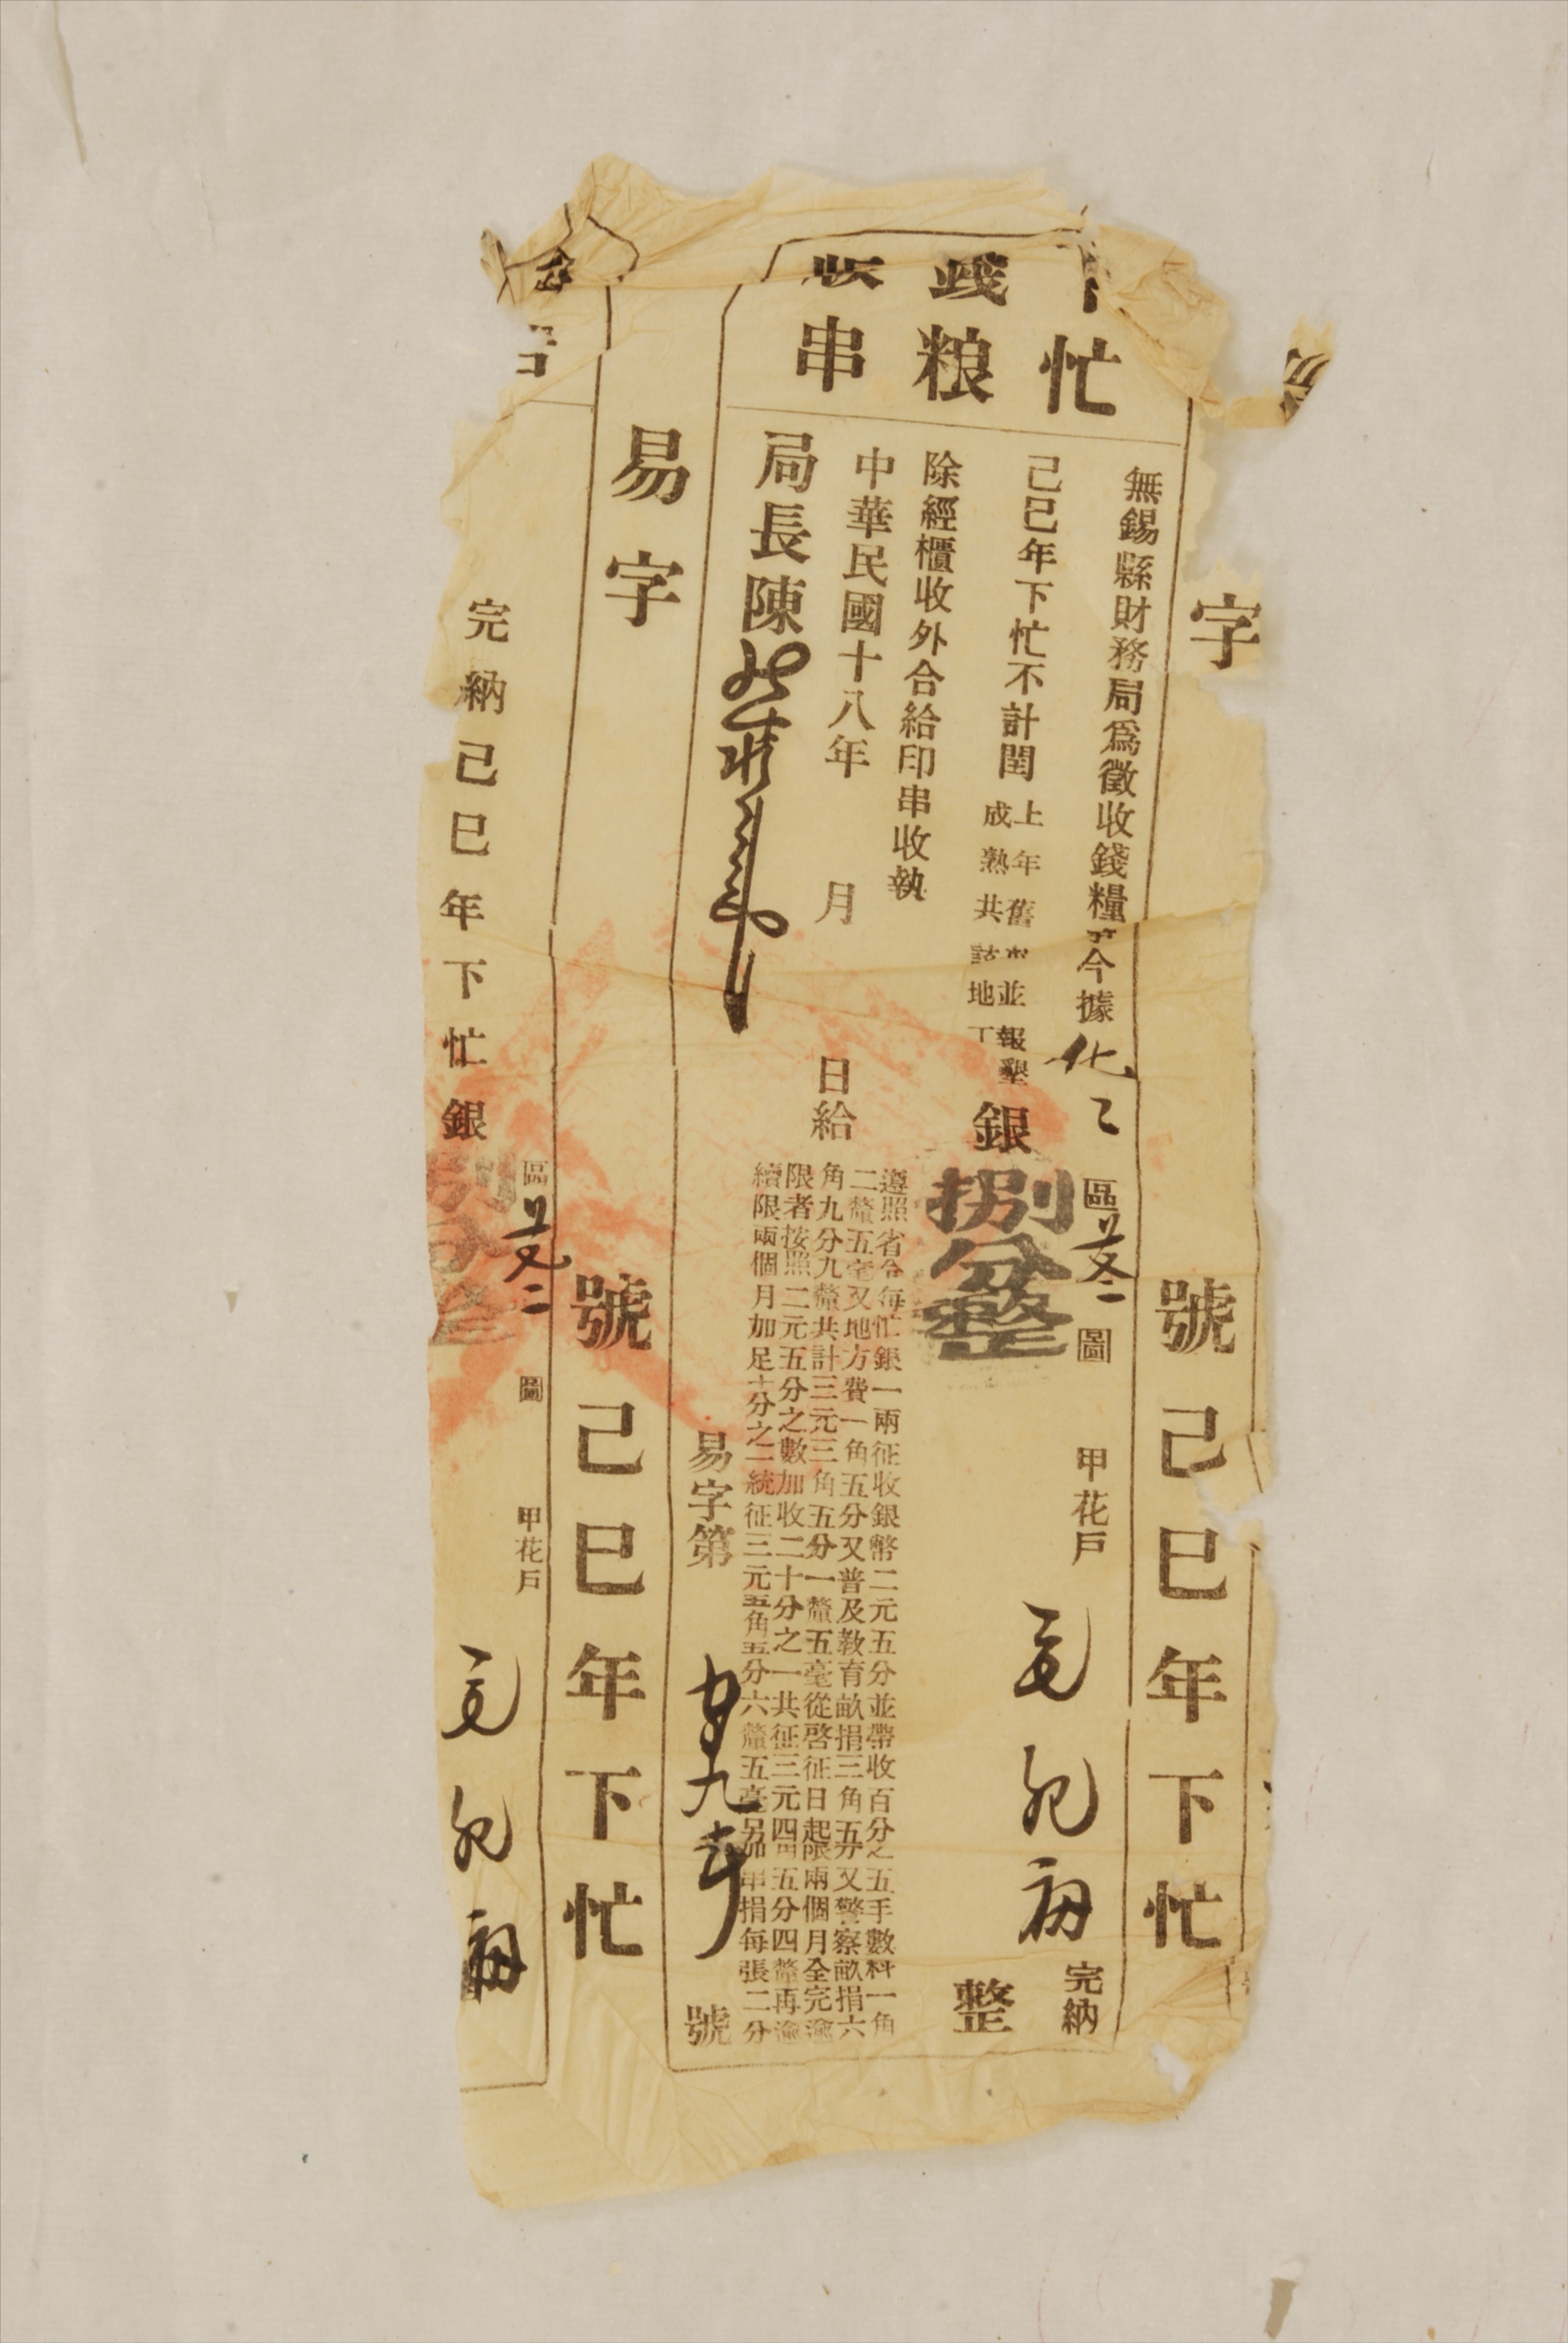 字
號
己巳年下忙
忙
粮
串
無錫縣財務局爲徵收錢糧 今據化
區
圖
甲花戶
完納
己巳年下忙不計閏
上年舊 並報墾
成熟共 地丁
銀捌分整
整
除經櫃收外合給印串收執
遵照省令每忙銀一兩征收銀幣二元五分並帶收百分之五手數料一角
二釐五毫又地方費一角五分又普及教育畝捐三角五分又警察畝捐六
角九分九釐共計三元三角五分一釐五毫從啓征日起限兩個月全完逾
限者按照二元五分之數加收二十分之一共征三元四角五分四釐再逾
續限兩個月加足十分之一統征三元五角五分六釐五毫另加串捐每張二分
中華民國十八年 月 日給
局長陳
易字第
號
易字
號
己巳年下忙
區
圖
甲花戶
完納己巳年下忙銀捌分整